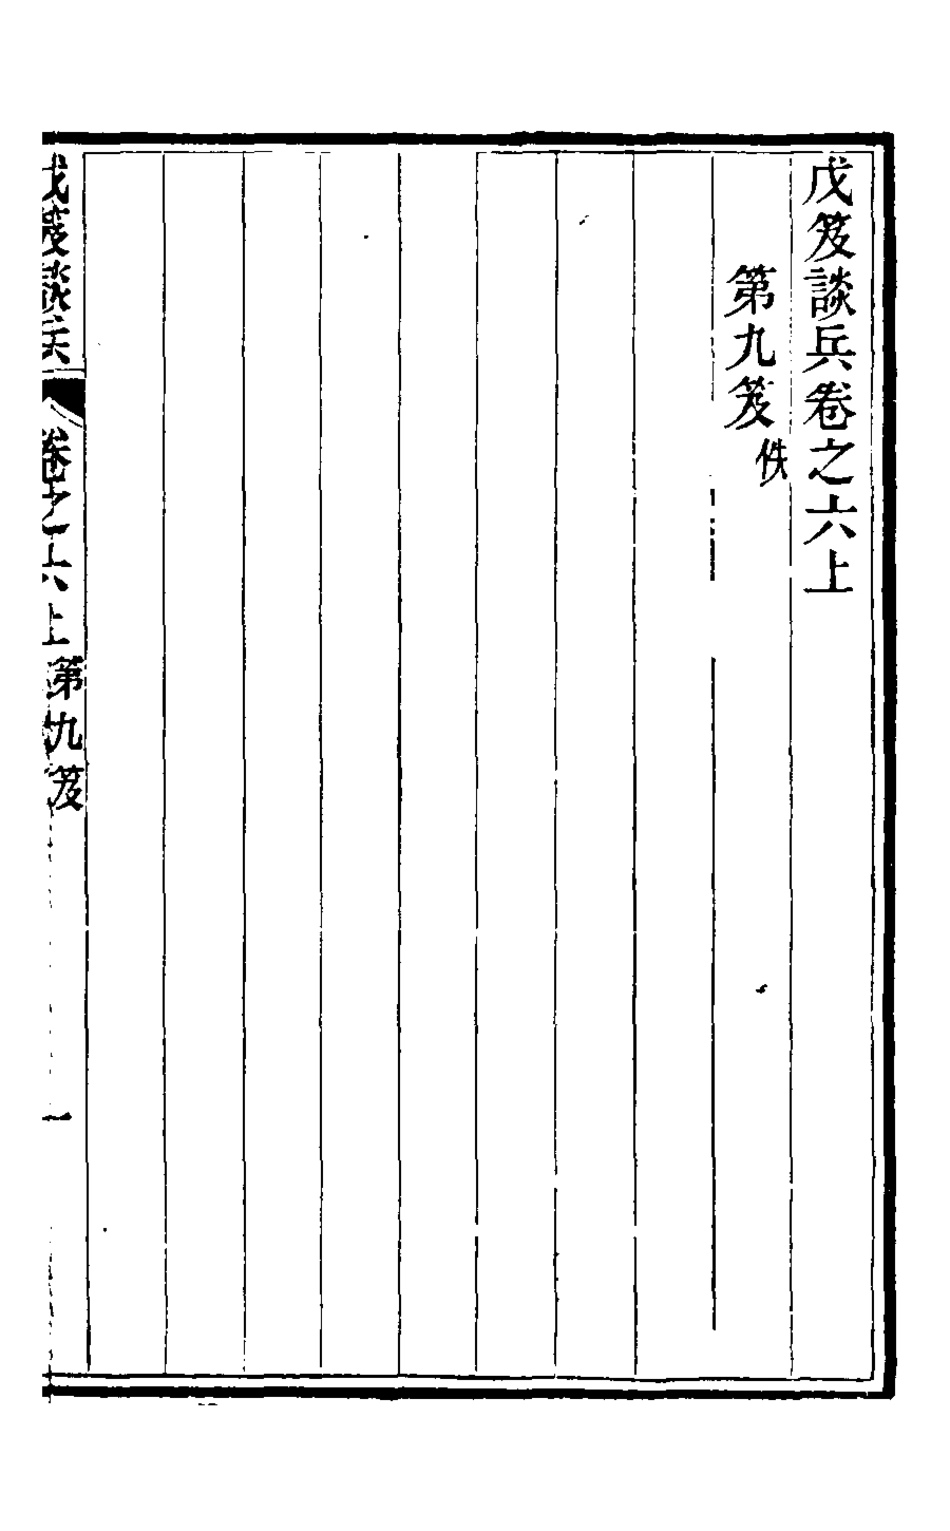 戊笈談兵卷之六上
第九笈佚
戊笈談兵
卷之六上 第九笈
一